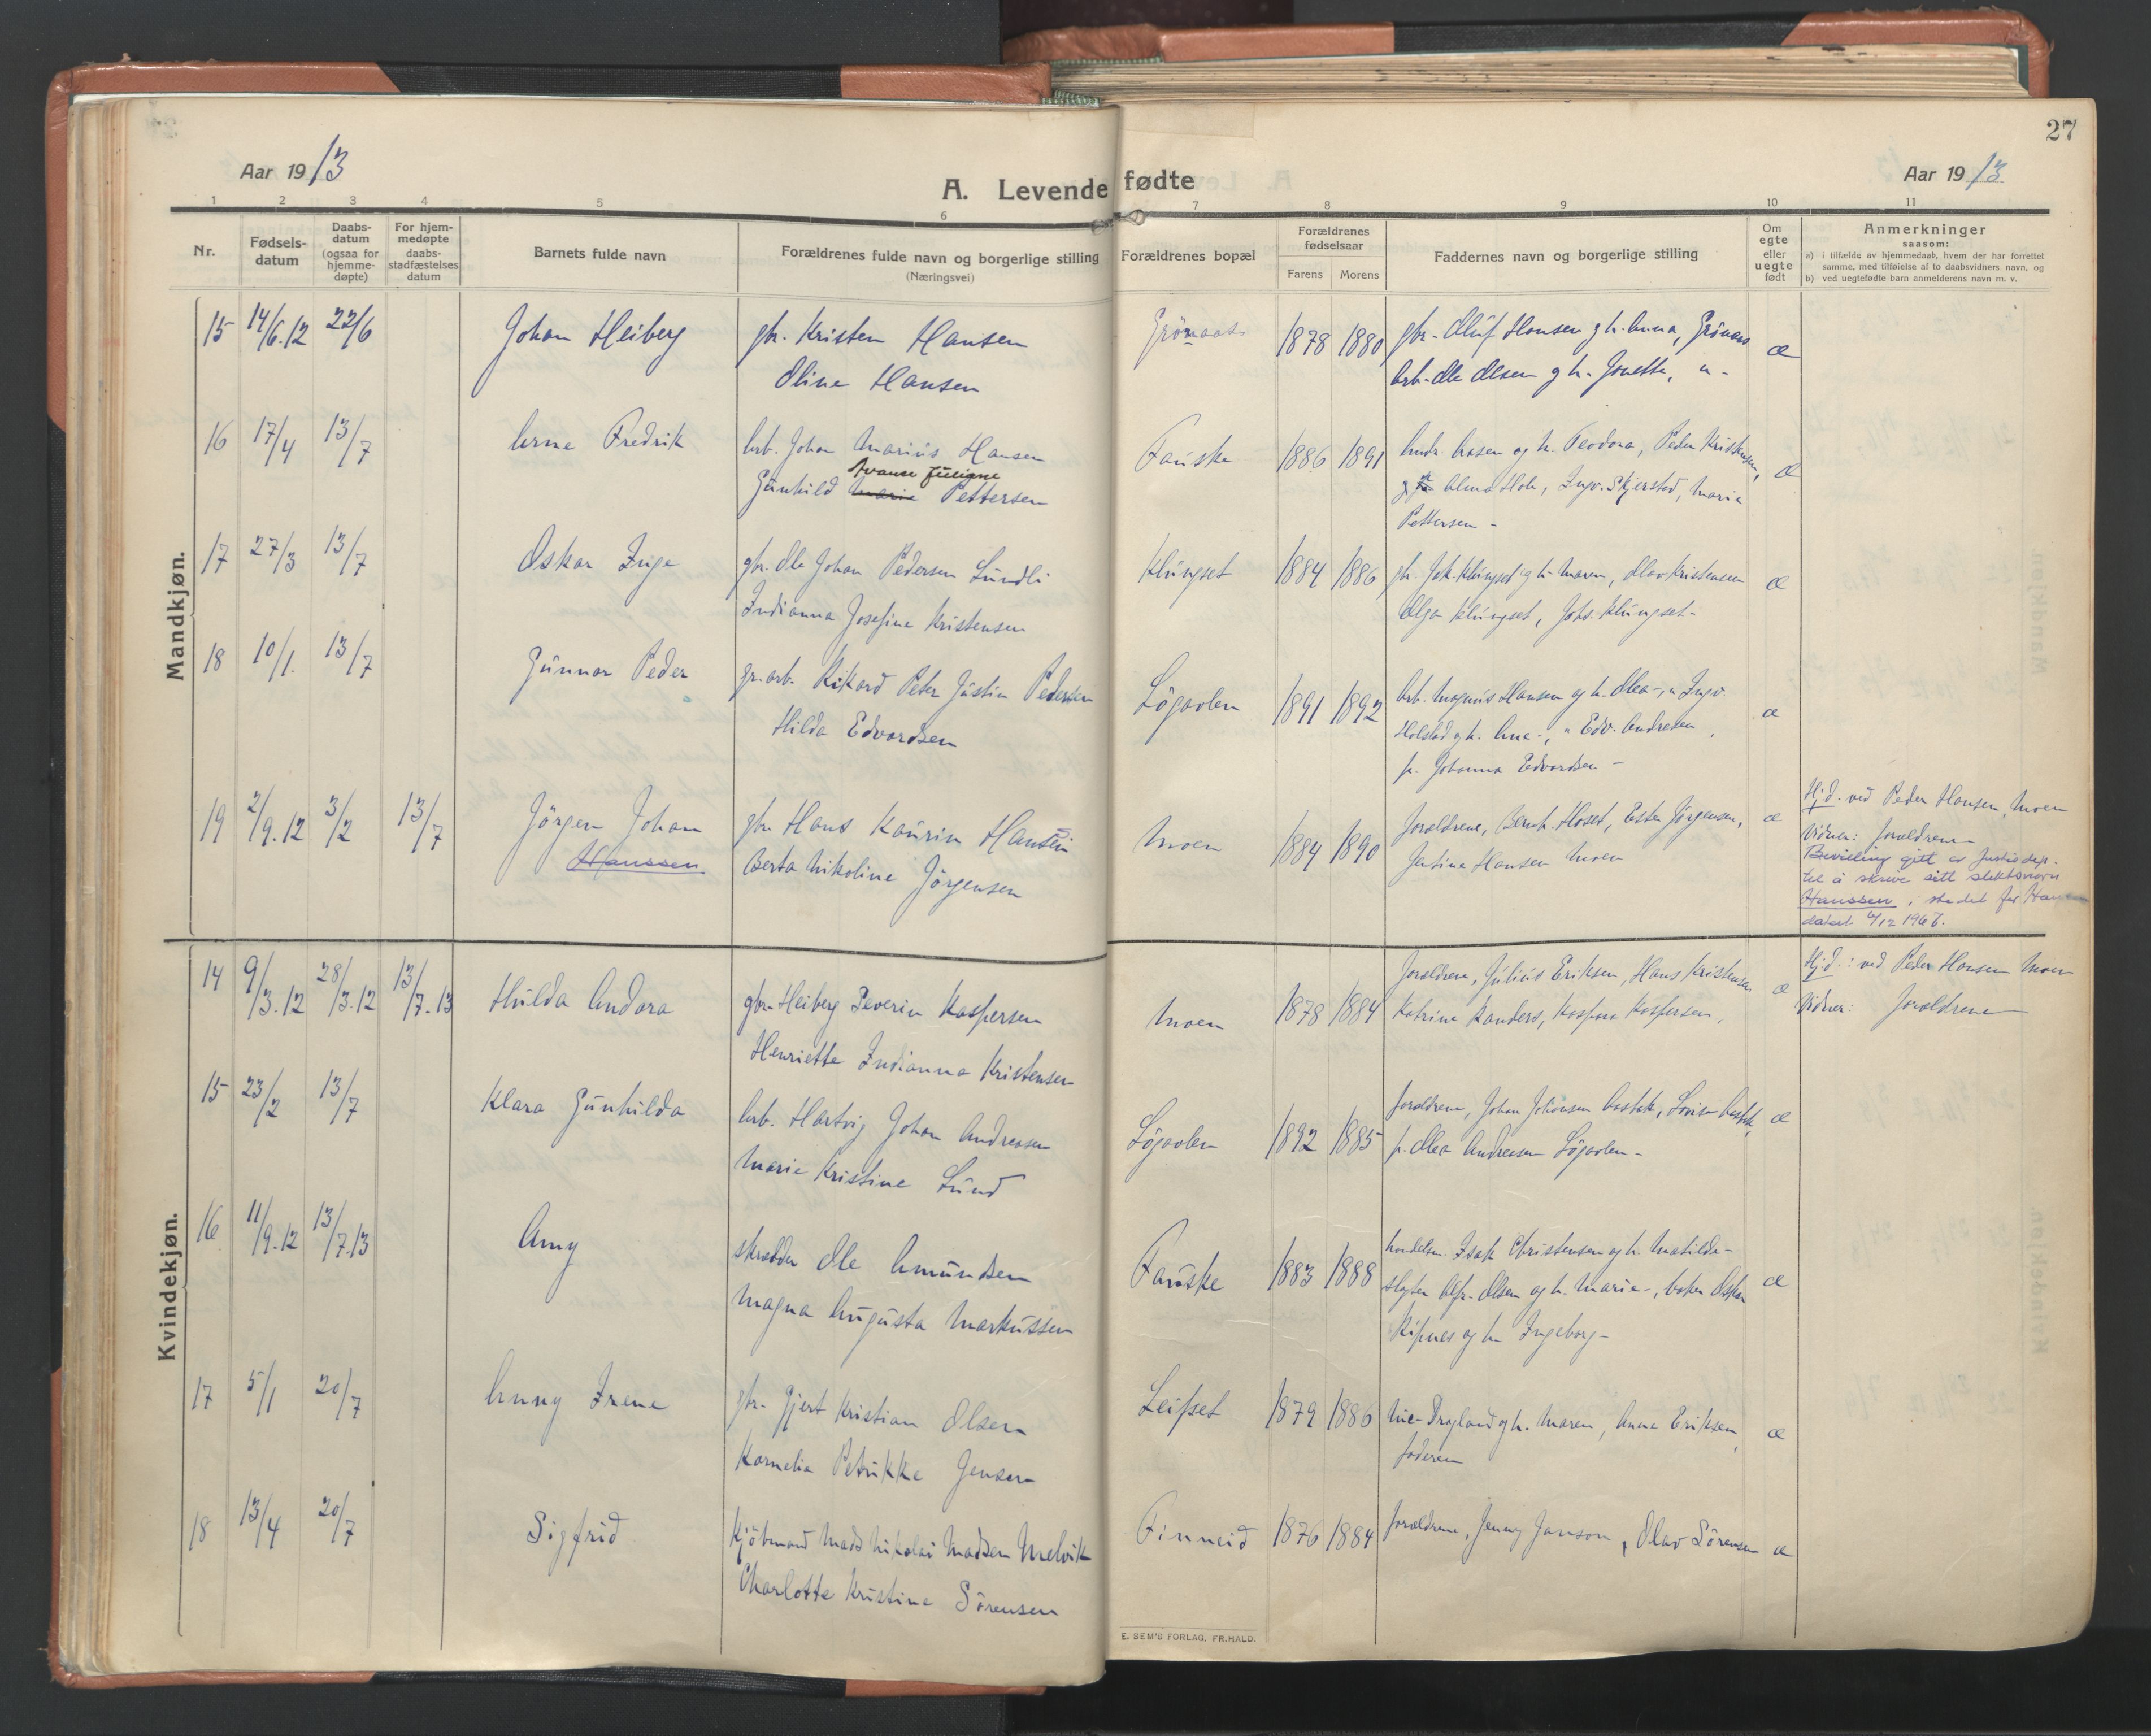 27
Aar 1913
A. Levende fødte
Aar 1913.
1 2 3 4 5 6 7 8 9 10 11
Nr.
Fødsels-
datum
Daabs-
datum
(ogsaa for
hjemme-
døpte)
For hjem-
medøpte
daabs-
stadfæstelses
datum
Barnets fulde navn
Forældrenes fulde navn og borgerlige stilling
(Næringsvei)
Forældrenes bopæl
Forældrenes
fødselsaar
Farens Morens
Faddernes navn og borgerlige stilling
Om
egte
eller
uegte
født
Anmerkninger
saasom:
a) i tilfælde av hjemmedaab, hvem der har forrettet
samme, med tilføielse af to daabsvidners navn, og
b) ved uegtefødte barn anmelderens navn m. v.
Mandkjøn.
15 14/6.12 22/6 Johan Heiberg gbr. Kristen Hansen
Oline Hansen
1878 1880 gbr. Oluf Hansen g h. Anna, Grönaas
Arb. Ole Olsen g h. Jonetta, " - æ
16 17/4 13/7 Arne Fredrik Arb. Johan Marius Hansen
Gunhild Marie Pettersen
Fauske 1886 1891 Andr. Aasen og h. Teodora, Peder Kristensen,
Alma Hole, Ingv. Skjerstad, Marie
Pettersen - æ
17 27/3 13/7 Oskar Inge gbr. Ole Johan Pedersen Lundli
Indianna Josefine Kristensen
Klungset 1884 1886 gbr. Joh. Klungset g h. Maren, Olav Kristensen
Olga Klungset, Johs. Klungset - æ
18 10/1. 13/7 Gunnar Peder gr.arb. Rikard Peter Justin Pedersen
Hilda Edvardsen
Lögavlen 1891 1892 Arb. Magnus Hansen og h. Olea -, " Ingv.
Holstad g h. Ane -, " Edv. Andresen,
p. Johanna Edvardsen - æ
19 2/9.12 3/2 13/7 Jörgen Johan
Hanssen
gbr. Hans Kaurin Hansen
Berta Nikoline Jörgensen
Moen 1884 1890 Forældrene, Bernh. Hoset, Ester Jörgensen,
Hansen Moen æ
Hj.d. ved Peder Hansen, Moen
Vidner: forældrene
Bevilling gitt av Justisdep.
til å skrive sitt slektsnavn
Hanssen i stedet for Hansen
datert 4/12 1967.
Kvindekjøn.
14 9/3.12 28/3.12 13/7.13 Hulda Andora gbr. Heiberg Severin Kaspersen
Henriette Indianna Kristensen
Moen 1878 1884 Forældrene, Julius Eriksen, Hans Kristensen
Katrine Randers, Kaspara Kaspersen, æ
Hj.d.: ved Peder Hansen Moen
Vidner: Forældrene
15 23/2 13/7 Klara Gunhilda Arb. Hartvig Johan Andreasen
Marie Kristine Lund
Lögavlen 1892 1885 Forældrene, Johan Johansen
p. Olea Andreasen Lögavlen - æ
16 11/9.12 13/7.13 Amy skrædder Ole Amundsen
Magna Augusta Markussen
Fauske 1883 1888 handelsm. Isak Christensen og h. Matilde -
Alfr. Olsen og h. Marie -, baker Oskar
Ripnes og h. Ingeborg - æ
17 5/1 20/7 Anny Irene gbr. Gjert Kristian Olsen
Kornelia Petrikke Jensen
Leifset 1879 1886 Nic. g h. Maren, Anna Eriksen,
faderen æ
18 13/4 20/7 Sigfrid Kjöbmand Mads Nikolai Madsen Melvik
Charlotte Kristine Sörensen
Finneid 1876 1884 Forældrene, Jenny Janson, Olav Sörensen æ
E. SEM'S FORLAG, FR.HALD.